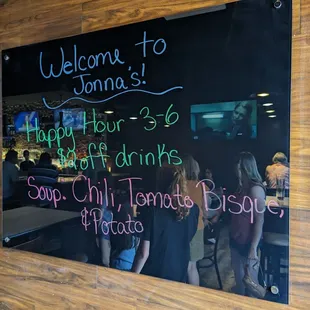 Welcome to
Jonna's!
Happy Hour 3-6
$2 off drinks
Soup. Chili, Tomato Bisque,
& Potato